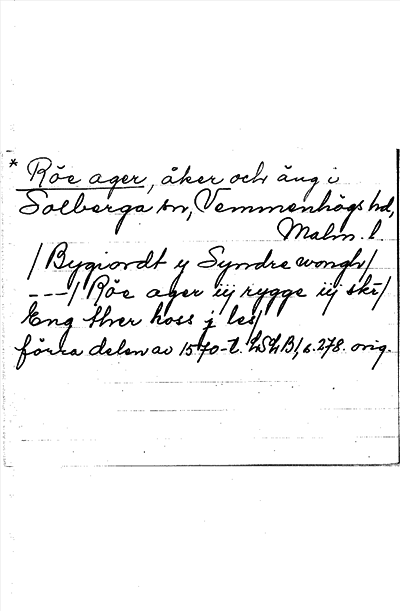 * Röe ager, åker och äng i
Solberga sn, Vemmenhögs hd,
Malm. l
/ Bygiordt y Syndre wongh/
---/ Röe ager iij rygge iij skr/
Eng ther hoss j les/
förra delen av 1570-t. LSLB, s. 278. orig.